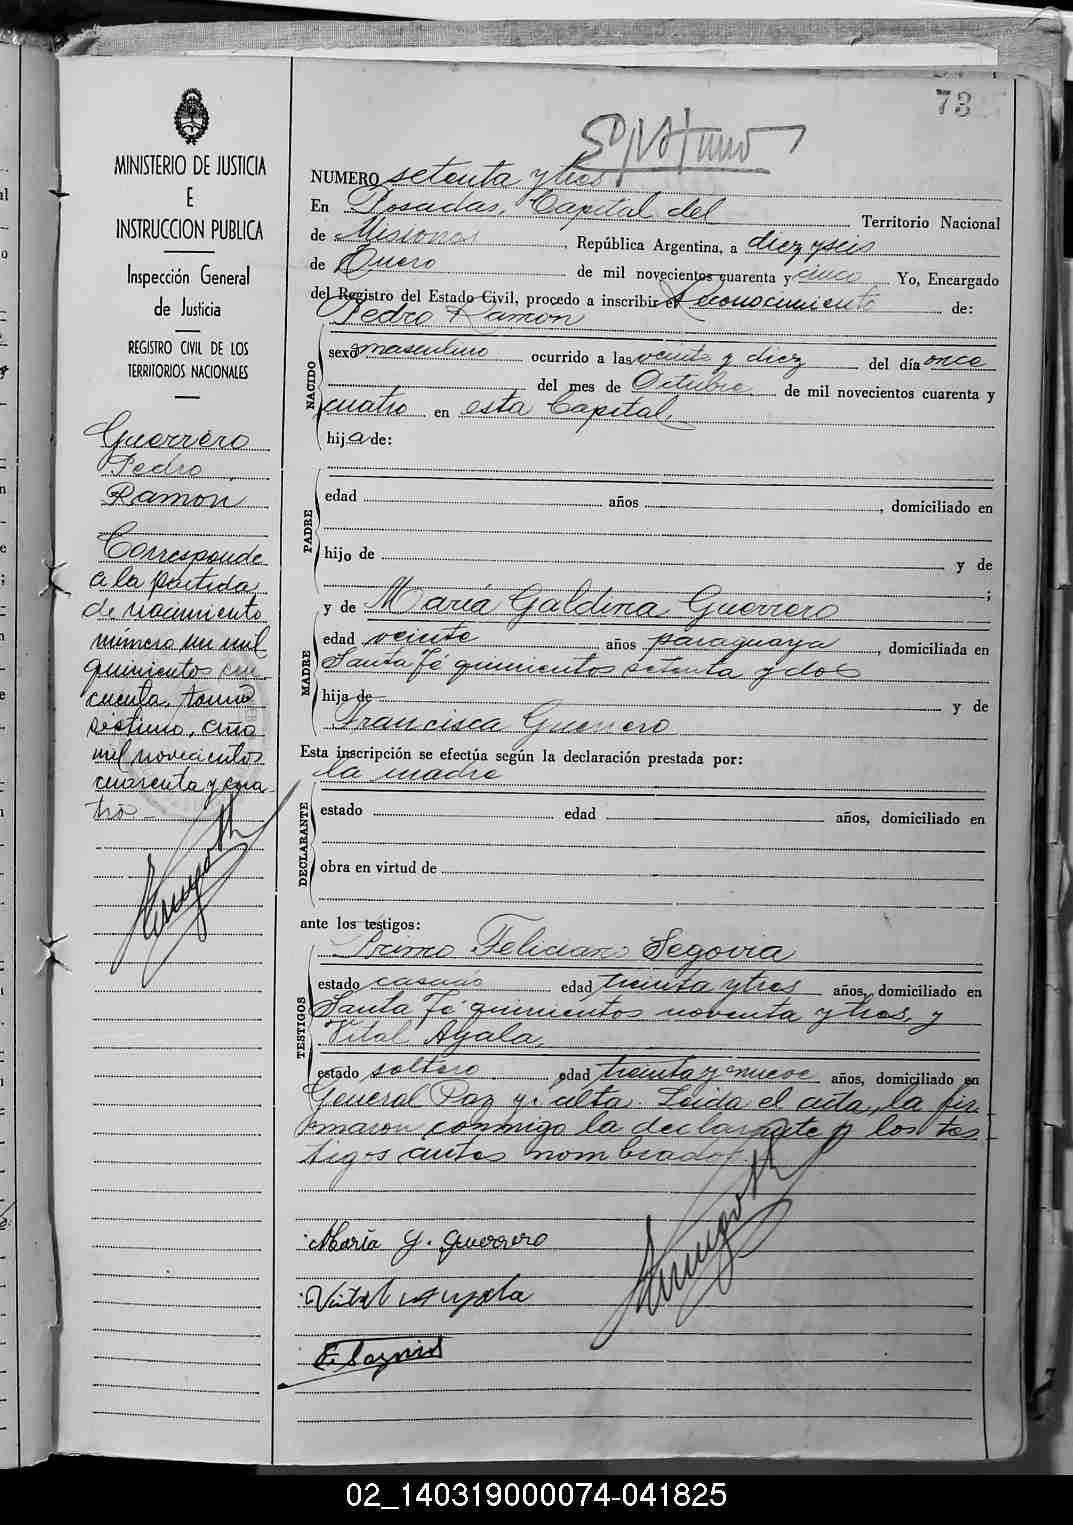 73
MINISTERIO DE JUSTICIA
E
INSTRUCCION PUBLICA
Inspección General
de Justicia
REGISTRO CIVIL DE LOS
TERRITORIOS NACIONALES
Guerrero
Pedro
Ramón
Corresponde
a la partida
de nacimiento
número un mil
quinientos cin-
cuenta, tomo
séptimo, año
mil novecientos
cuarenta y cua-
tro
NUMERO setenta y tres
En Posadas, Capital del Territorio Nacional
de Misiones, República Argentina, a diez y seis
de Enero de mil novecientos cuarenta y cinco Yo, Encargado
del Registro del Estado Civil, procedo a inscribir el Reconocimiento de:
Pedro Ramón
NACIDO
sexo masculino ocurrido a las veinte y diez del día once
del mes de Octubre de mil novecientos cuarenta y
cuatro en esta Capital
hijo de:
PADRE
edad años , domiciliado en
hijo de y de
;
MADRE
y de María Galdina Guerrero
edad veinte años paraguaya, domiciliada en
Santa Fé quinientos setenta y dos
hija de y de
Francisca Guerrero
Esta inscripción se efectúa según la declaración prestada por:
la madre
DECLARANTE
estado edad años, domiciliado en
obra en virtud de
ante los testigos:
TESTIGOS
Primo Feliciano Segovia
estado casado edad treinta y tres años, domiciliado en
Santa Fé quinientos noventa y tres, y
Vital Ayala,
estado soltero edad treinta y nueve años, domiciliado en
General Paz y. Leída el acta, la fir-
maron conmigo la declarante y los tes-
tigos antes nombrados.
María G. Guerrero
Vital Ayala
02_140319000074-041825